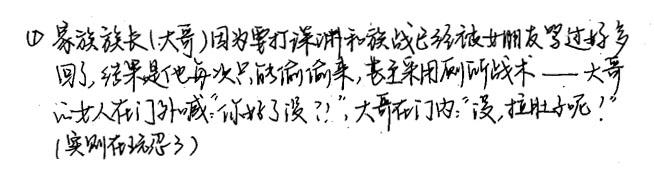 (1) 家族族长(大哥)因为要打深渊和族战已经被女朋友骂过好多
回了,结果是他每次只能偷偷来,甚至采用厕所战术——大哥
心女人在门外喊:“你好了没?!”,大哥在门内:“没,拉肚子呢!”
(实则在玩忍3)